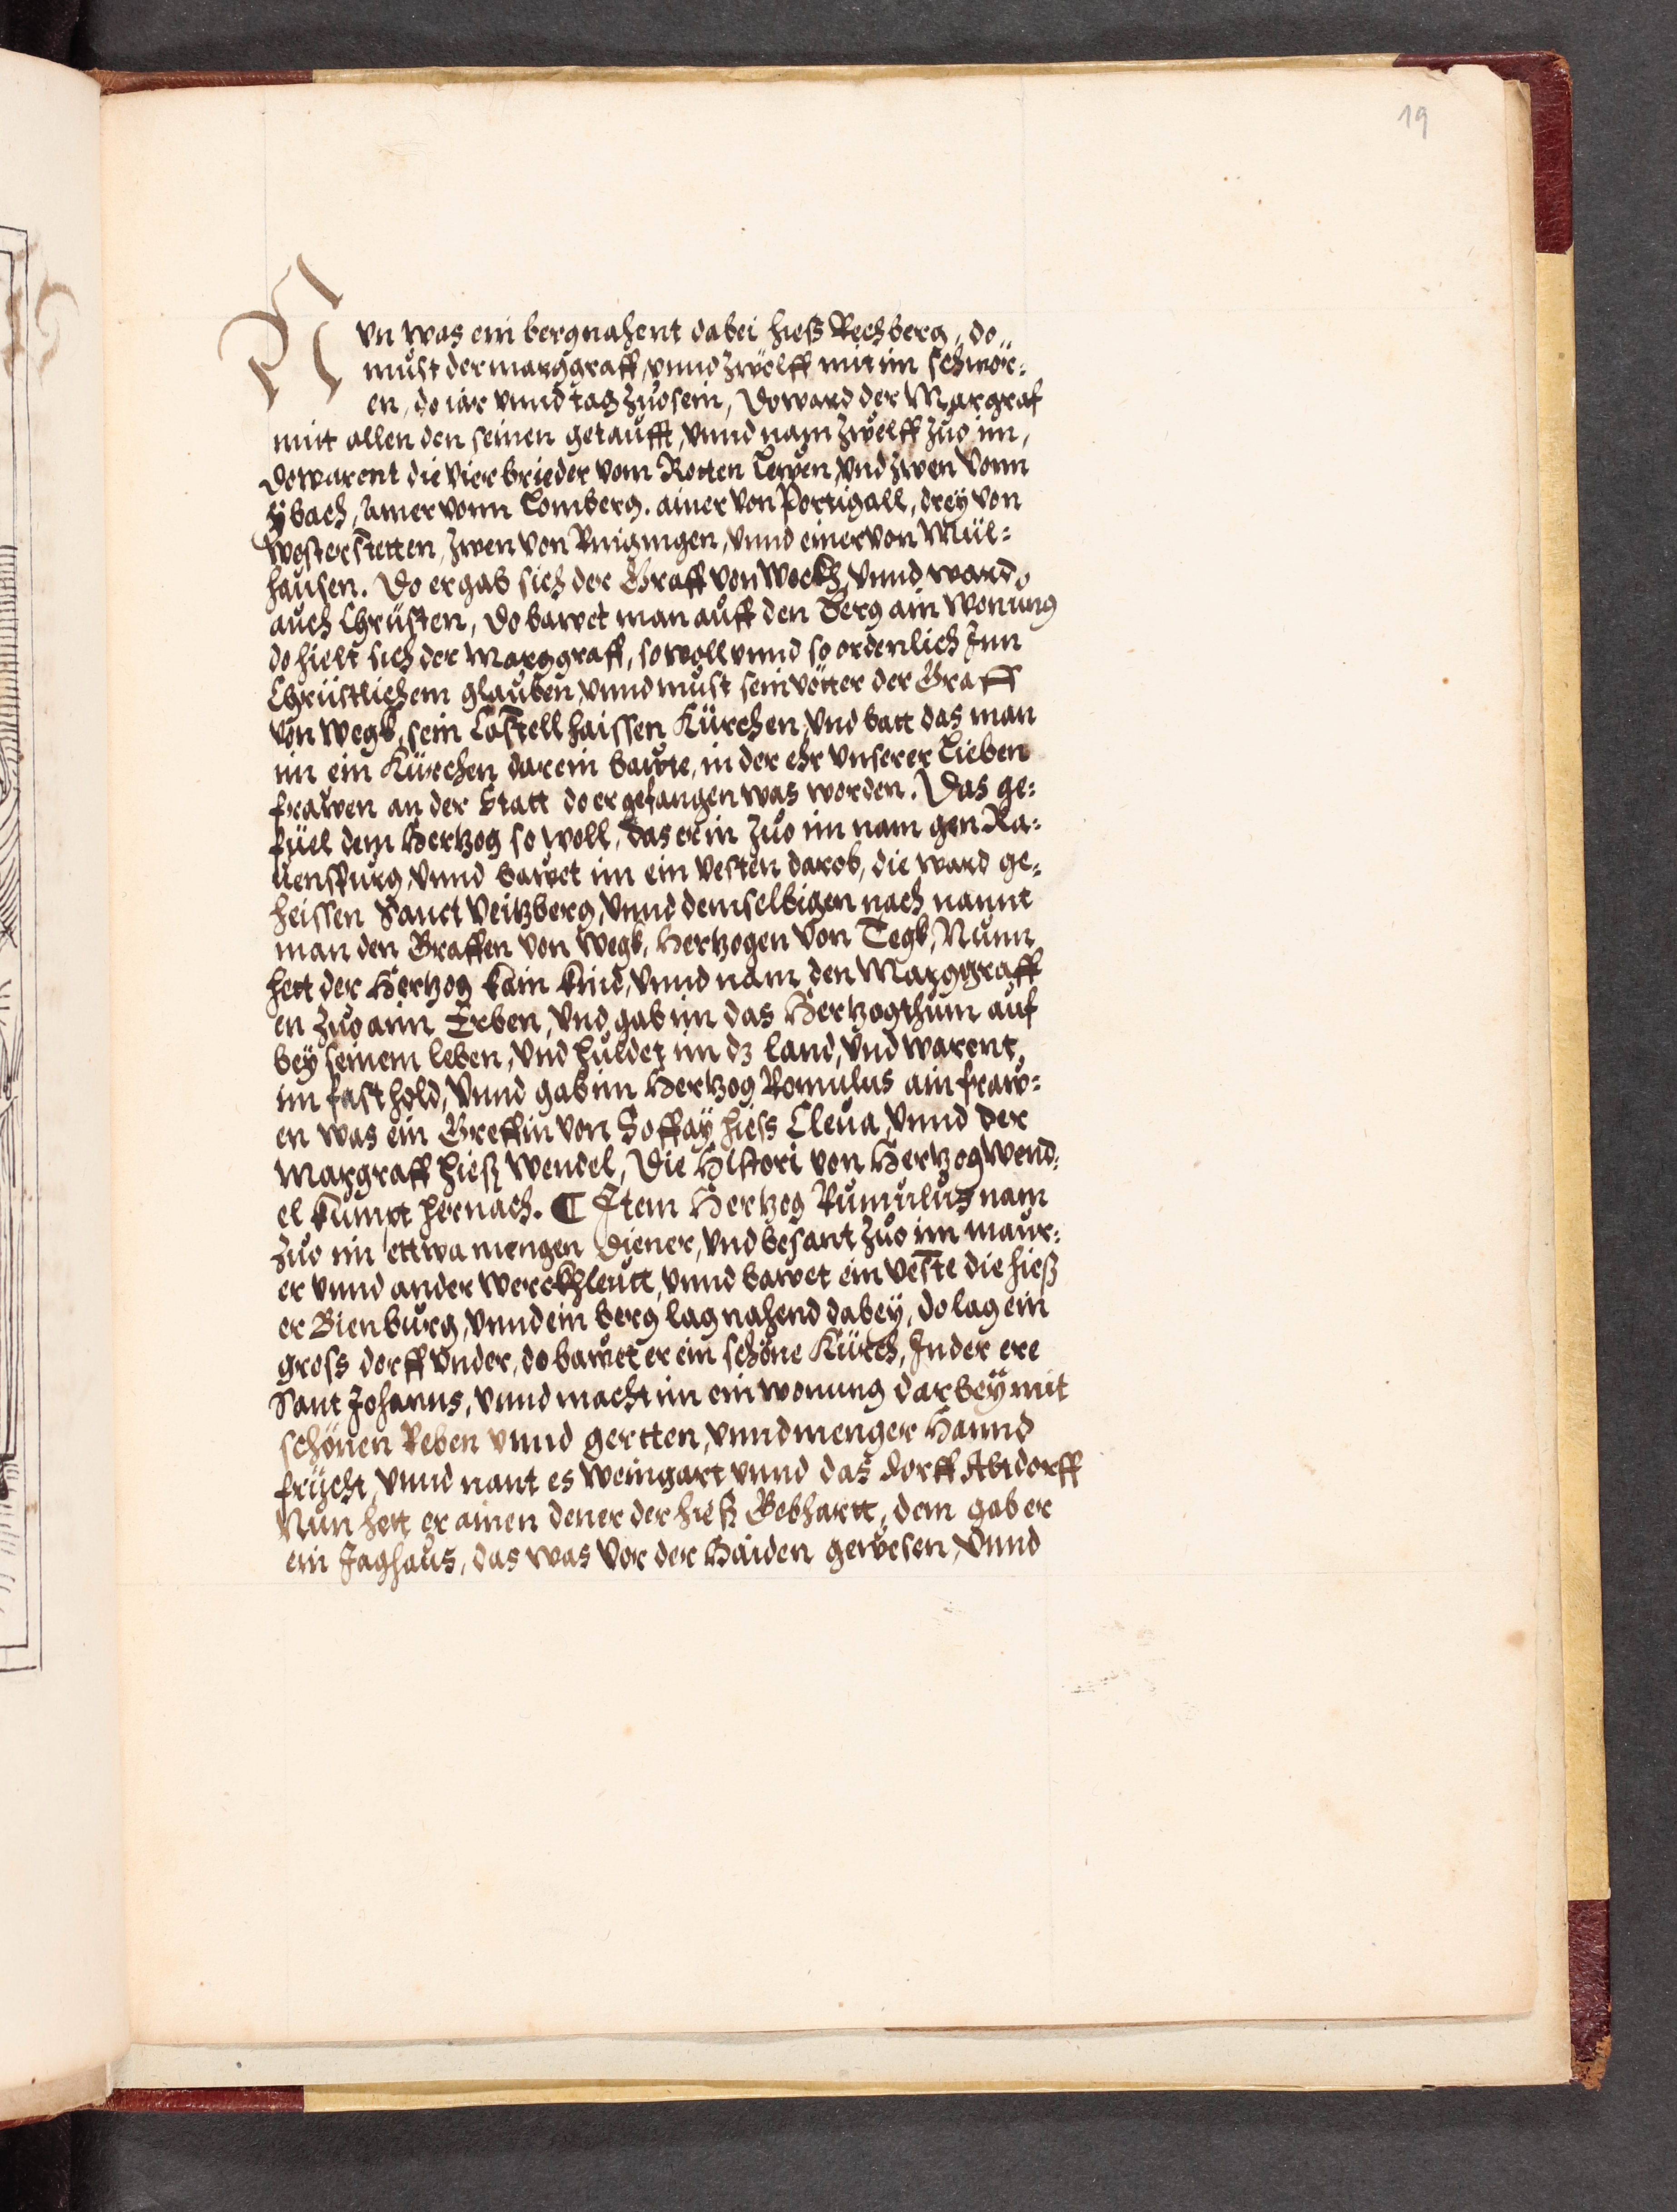 19
Nun was ein berg nahent dabei hieß Rechberg, do„
must der marggraff, vnnd zwölff mit im schwör:
en, do iar vnnd tag zuo sein, Do ward der Margraf
mit allen den seinen getaufft, vnnd nam zwelff zuo im,
do warent die vier brieder vom Rotten Lewen, vnd zwen vonn
ÿbach, Ainer vonn Lomberg. ainer von Portigall, drey von
Westerstetten, zwen von Ringingen, vnnd einer von Mül:
hausen. Do ergab sich der Graff von Weckh, vnnd ward
auch Chrüsten, Do bawet man auff den Berg ain Wonung
do hielt sich der Marggraff, so woll vnnd so ordenlich Jnn
Chrüstlichem glauben, vnnd must sein vötter der Graff
von Wegk, sein Castell haissen Kürchen, vnd batt das man
im ein Kürchen darein bawte, in der ehr vnserer Lieben
frawen an der Statt do er gefangen was worden. Das ge:
füel dem Hertzog so woll, das er in zuo im nam gen Ra:
uenspurg, vnnd bawet im ein vesten darob, die ward ge:
heissen Sanct Veitzberg, vnnd demselbigen nach nannt
man den Graffen von Wegk, Hertzogen von Tegk, Nunn
hett der Hertzog kain kind, vnnd nam den Marggraff
en zuo aim Erben, vnd gab im das Hertzogthum auf
bey seinem leben, vnd huldet im dz land, vnd warent
im fast hold, vnnd gab im Hertzog Romulus ain fraw:
en was ein Greffin von Soffay hiess Cleua, vnnd der
Margraff hieß Wendel, Die Histori von Hertzog Wend:
el kumpt hernach. ¶ Jtem Hertzog Rumulus nam
zuo im ettwa mengen Diener, vnd besant zuo im maur:
er vnnd ander Werckhleutt, vnnd bawet ein veste die hieß
er Bienburg, vnnd ein berg lag nahend dabeÿ, do lag ein
gross dorff vnder, do bawet er ein schöne Kürch, Jn der ere
Sant Johanns, vnnd macht im ein wonung darbeÿ mit
schönen Reben vnnd gertten, vnnd menger Hannd
frücht, vnnd nant es Weingart vnnd das dorff Altdorff
Nun hett er ainen dener der hieß Gebhartt, dem gab er
ein Jaghaus, das was vor der Haiden gewesen, vnnd